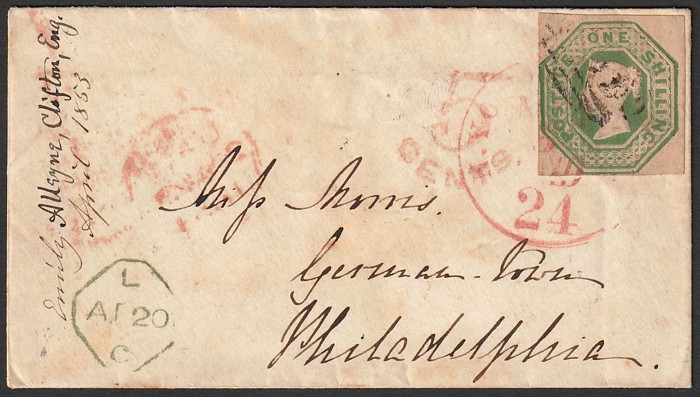 Emily Alleyne, Clifton, Eng.
April 1853
POSTAGE ONE SHILLING
CENTS
24
Miss Morris.
German-Town
Philadelphia.
L
AP 20